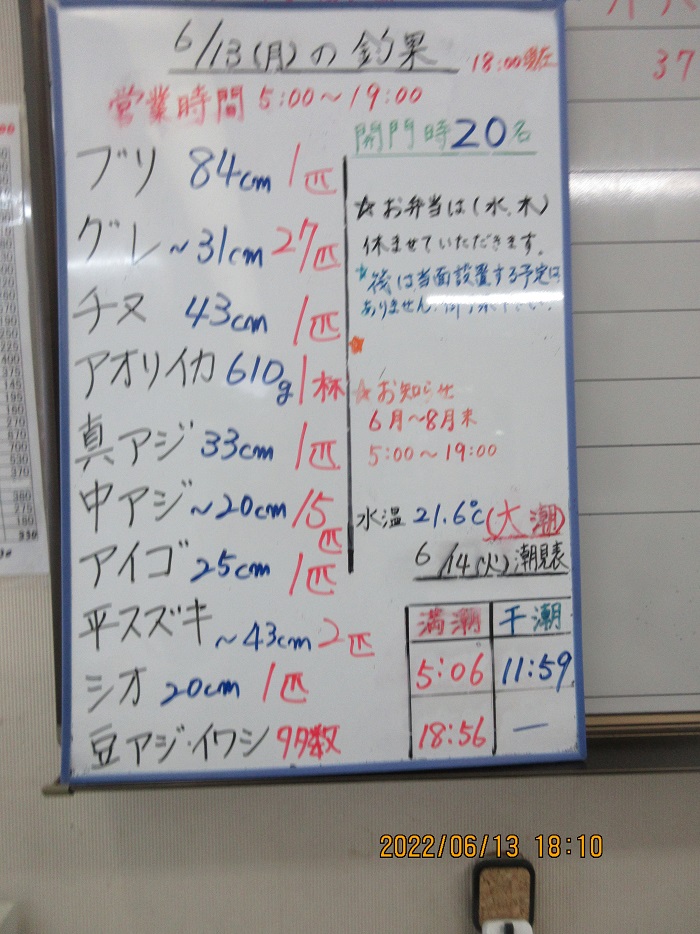 6/13(月)の釣果 18:00現在
営業時間 5:00〜19:00
開門時20名
ブリ 84cm 1匹
グレ ~31cm 27匹
チヌ 43cm 1匹
アオリイカ 610g 1杯
真アジ 33cm 1匹
中アジ ~20cm 15匹
アイゴ 25cm 1匹
平スズキ ~43cm 2匹
シオ 20cm 1匹
豆アジ・イワシ 多数
☆お弁当は(水、木)
休ませていただきます。
後は当面設置する予定は
ありません。
☆お知らせ
6月〜8月末
5:00〜19:00
水温 21.6℃(大潮)
6/14(火)潮見表
満潮 干潮
5:06 11:59
18:56 —
37
2022/06/13 18:10